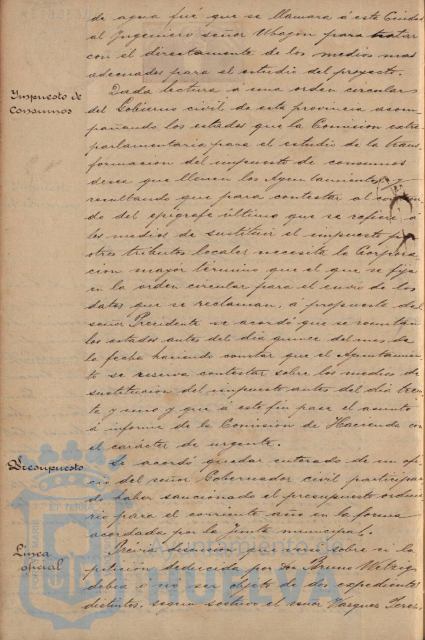 de agua fué que se llamara á esta Ciudad
al Ingeniero señor Obejon para tratar
con él directamente de los medios mas
adecuados para el estudio del proyecto.
Impuesto de
Consumos
Dada lectura á una orden circular
del Gobierno civil de esta provincia acom-
pañando los estados que la Comision extra-
parlamentaria para el estudio de la trans-
formacion del impuesto de consumos
desea que llenen los Ayuntamientos y
resultando que para contestar al conteni-
do del epígrafe último que se refiere á
los medios de sustituir el impuesto por
otros tributos locales necesita la Corpora-
cion mayor término que el que se fija
en la orden circular para el envio de los
datos que se reclaman, á propuesta del
señor Presidente se acordó que se remitan
los estados antes del dia quince del mes de
la fecha haciendo constar que el Ayuntamien-
to se reserva contestar sobre los medios de
sustitucion del impuesto antes del dia trein-
ta y uno y que á este fin pase el asunto
á informe de la Comision de Hacienda con
el carácter de urgente.
Presupuesto
Se acordó quedar enterado de un ofi-
cio del señor Gobernador civil participan-
do haber sancionado el presupuesto ordina-
rio para el corriente año en la forma
acordada por la Junta municipal.
Linea
oficial
Previa discusion que hubo sobre si la
peticion deducida por Dn Bruno
debia ó no ser objeto de dos expedientes
distintos, segun sostuvo el señor Vazquez
Ayuntamiento de
HUELVA